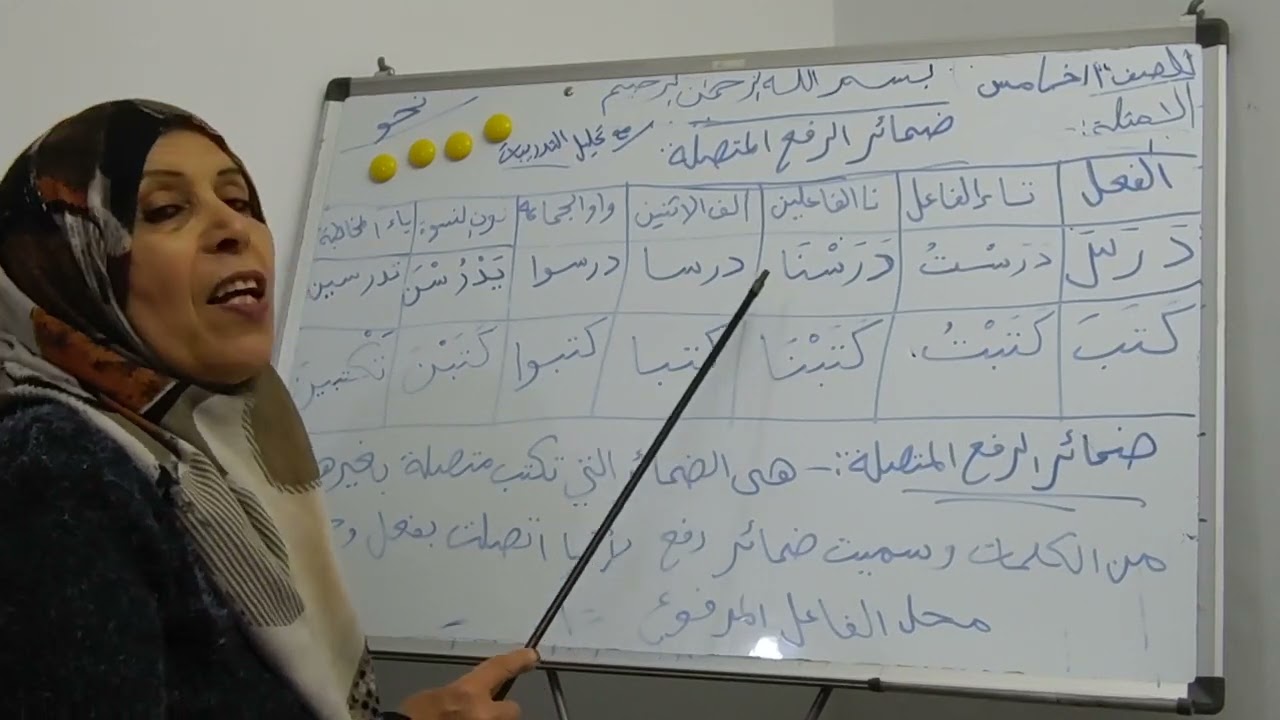 للصف الخامس بسم الله الرحمن الرحيم نحو
الأمثلة:- ضمائر الرفع المتصلة مع تحليل التدريبات
الفعل تاء الفاعل نا الفاعلين ألف الاثنين واو الجماعة نون النسوة ياء المخاطبة
دَرَسَ دَرَسْتُ دَرَسْنَا درسا درسوا يَدْرُسْنَ تدرسين
كَتَبَ كَتَبْتُ كَتَبْنَا كتبا كتبوا كَتَبْنَ تَكْتبين
ضمائر الرفع المتصلة:- هى الضمائر التي تكتب متصلة بغيرها
من الكلمات وسميت ضمائر رفع لأنها اتصلت بفعل
محل الفاعل المرفوع